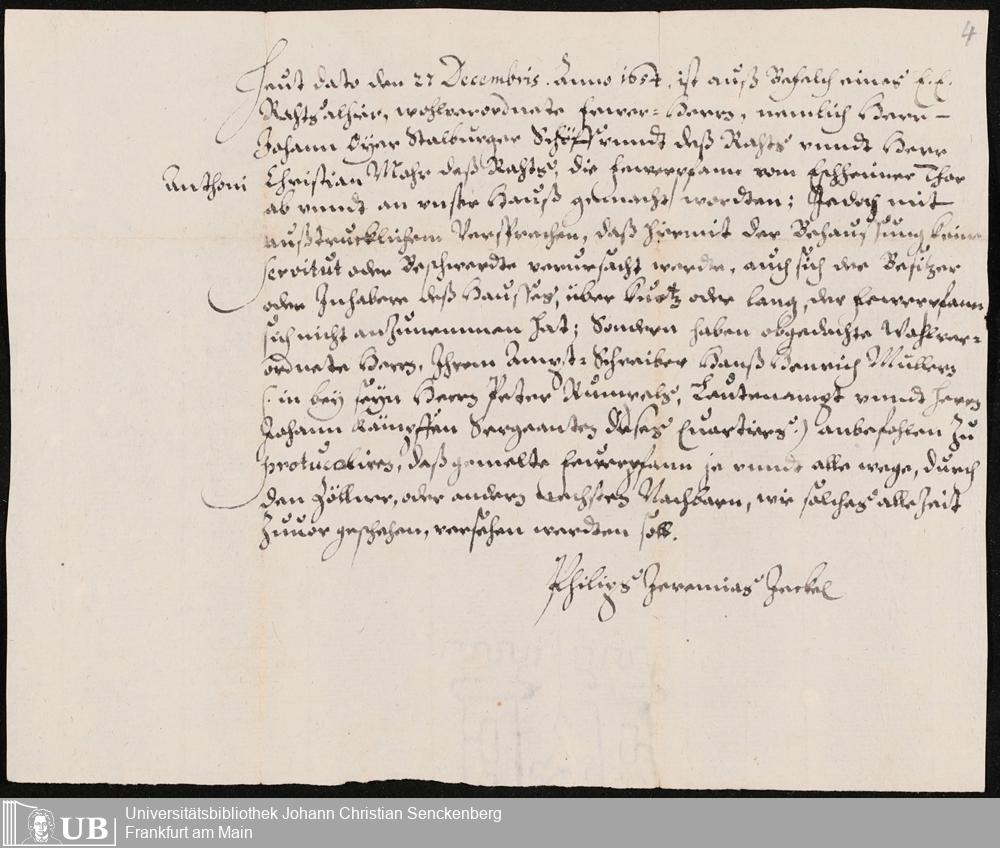 4
Heut dato den 27 Decembris. Anno 1654. ist auß Befelch eines E. E.
Rahts alhier, wohlverordnete Fewer= Herrn, nemlich Herr
Johann Stalburger Schöff vnndt deß Rahts vnndt Herr
Anthoni Christian Mohr deß Rahts, die Fewerpfann vom Eschheimer Thor
ab vnndt an vnser Hauß gemacht wordten; Jedoch mit
außtrucklichem Versprechen, daß hiermit der Behaussung keine
servitut oder Beschwerdte verursacht werdte, auch sich der Besitzer
oder Inhabere deß Hausses, über kurtz oder lang, der Fewerpfann
sich nicht anzunemmen hat; Sondern haben obgedachte Wohlver=
ordnete Herrn, Ihrem Schreiber Hanß Henrich Müllern
(: in bey seyn Herrn Peter Rumpels, Leutenampt vnndt Herrn
Johann Kämpffen Sergeanten dieses Quartiers :) anbefohlen zu
protucoliren, daß gemelte Fewerpfann je vnndt alle wege, durch
den Zöllner, oder andern nechsten Nachbarn, wie solches alle Zeit
zuuor geschehen, versehen werdten soll.
Philips Jeremias Jeckel
UB
Universitätsbibliothek Johann Christian Senckenberg
Frankfurt am Main